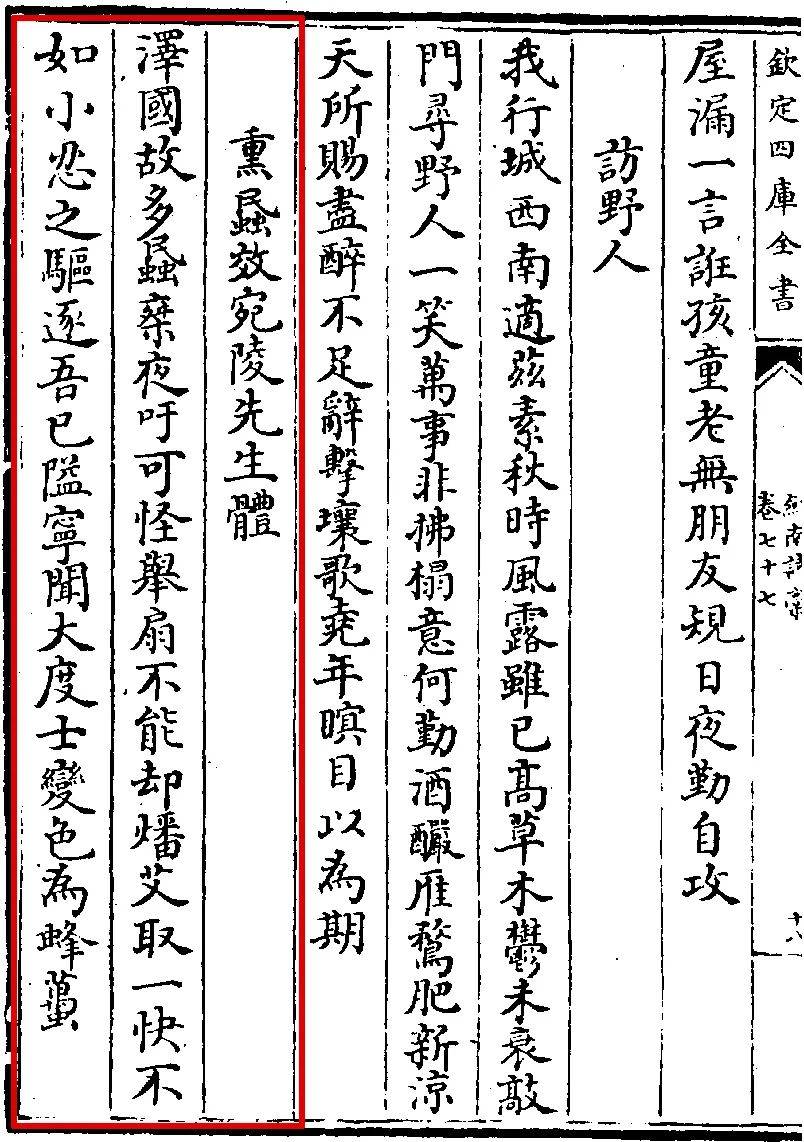 欽定四庫全書
卷七十七
十八
屋漏一言誑孩童老無朋友規日夜勤自攻
訪野人
我行城西南適茲素秋時風露雖已髙草木鬱未衰敲
門尋野人一笑萬事非拂榻意何勤酒釅雁鶩肥新涼
天所賜盡醉不足辭擊壤歌堯年瞑目以為期
熏蟁效宛陵先生體
澤國故多蟁乗夜吁可怪舉扇不能却燔艾取一快不
如小忍之驅逐吾已隘寧聞大度士變色為蜂蠆